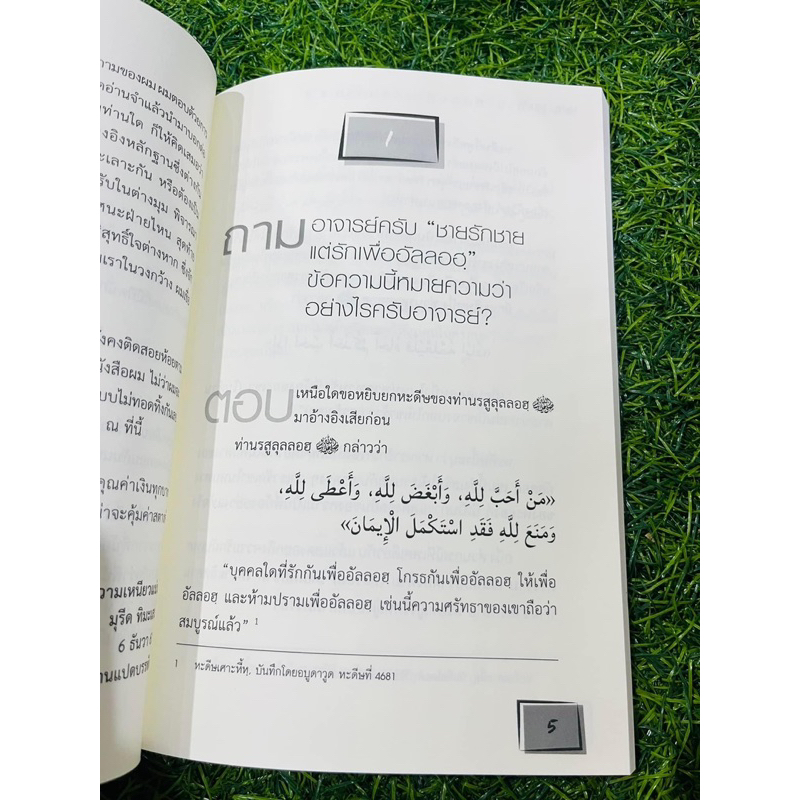 ามของผม ผมตอบด้วยการ
อ่านจำแล้วนำมาบอก
ท่านใด ก็ให้คิดเสมอว่า
อิงหลักฐานซึ่งต่างกัน
ะเลาะกัน หรือต้อง
รับในต่างมุม พิจาร
หนะฝ่ายไหน สุดท้าย
สุทธิ์ใจต่างหาก ซึ่ง
เราในวงกว้าง ผม
งคงติดสอยห้อยตาม
นังสือผม ไม่ว่า
บบไม่ทอดทิ้งกัน
ณ ที่นี้
คุณค่าเงินทุกบาท
ว่าจะคุ้มค่าสตางค์
วามเหนียวแน่น
มุรีด ทิมะเสน
6 ธันวา
านแปดบรรทัด
1
ถาม อาจารย์ครับ “ชายรักชาย
แต่รักเพื่ออัลลอฮฺ”
ข้อความนี้หมายความว่า
อย่างไรครับอาจารย์?
ตอบ เหนือใดขอหยิบยกหะดีษของท่านรสูลุลลอฮฺ ﷺ
มาอ้างอิงเสียก่อน
ท่านรสูลุลลอฮฺ ﷺ กล่าวว่า
«مَنْ أَحَبَّ لِلَّهِ، وَأَبْغَضَ لِلَّهِ، وَأَعْطَى لِلَّهِ،
وَمَنَعَ لِلَّهِ فَقَدِ اسْتَكْمَلَ الْإِيمَانَ»
“บุคคลใดที่รักกันเพื่ออัลลอฮฺ โกรธกันเพื่ออัลลอฮฺ ให้เพื่อ
อัลลอฮฺ และห้ามปรามเพื่ออัลลอฮฺ เช่นนี้ความศรัทธาของเขาถือว่า
สมบูรณ์แล้ว” 1
1 หะดีษเศาะหี้หฺ, บันทึกโดยอบูดาวูด หะดีษที่ 4681
5